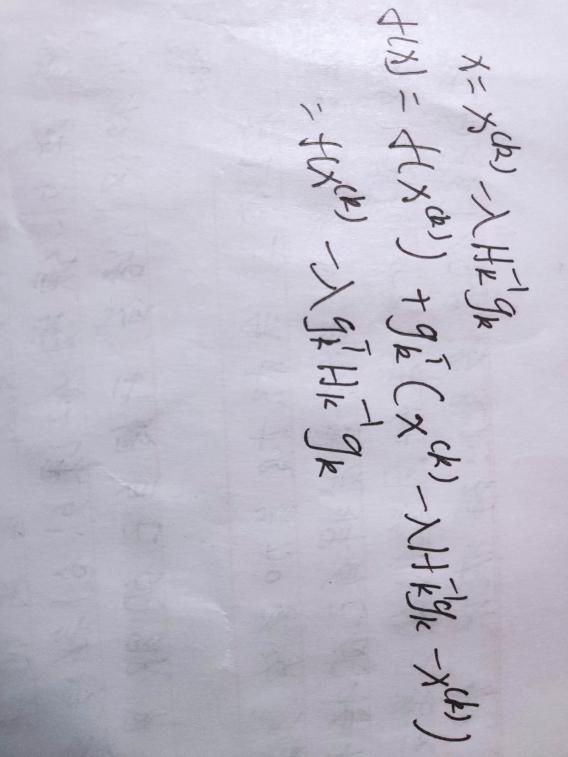 x = x^(k) - λ H_k^-1 g_k
f(x) = f(x^(k)) + g_k^T (x^(k) - λ H_k^-1 g_k - x^(k))
= f(x^(k) - λ g_k^T H_k^-1 g_k